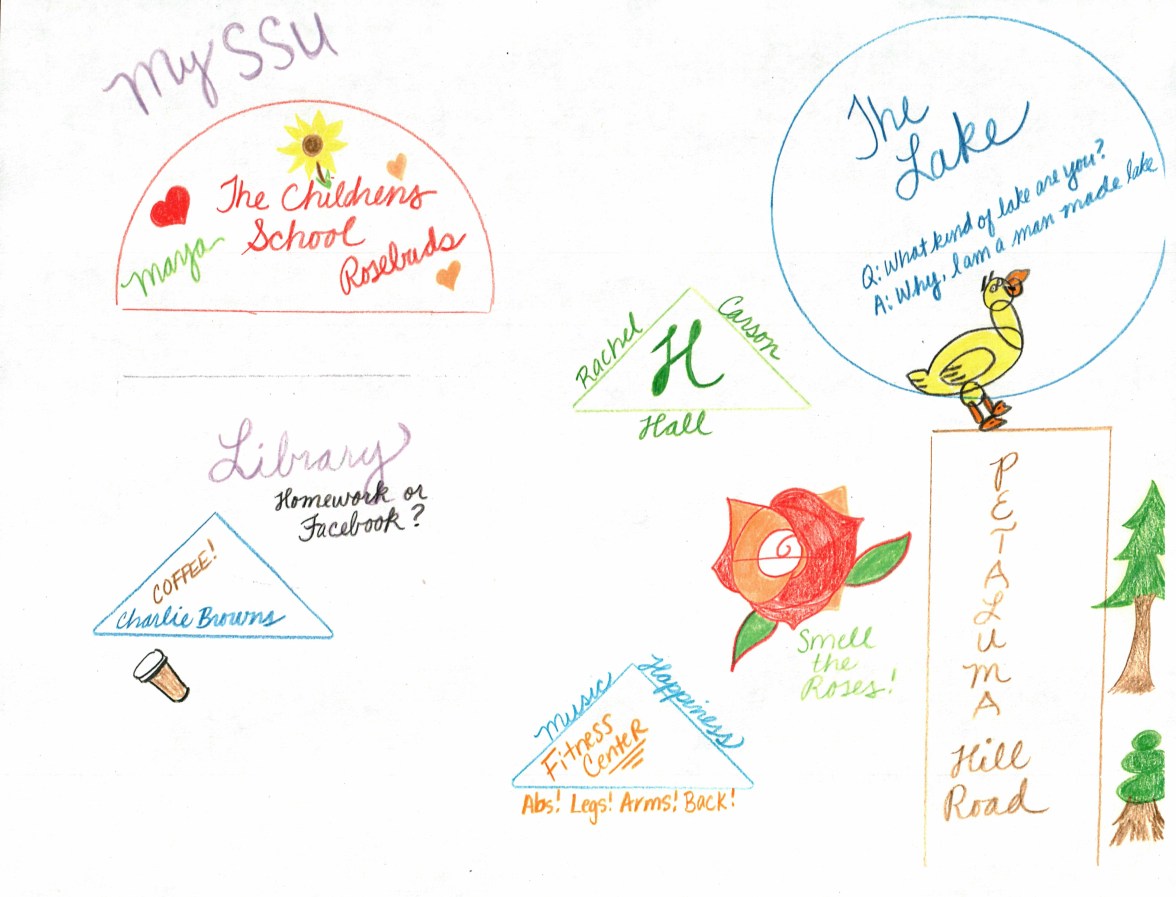 My SSU
The Childrens
School
Maya
Rosebuds
The
Lake
Q: What kind of lake are you?
A: Why, I am a man made lake
Rachel
Carson
H
Hall
Library
Homework or
Facebook?
COFFEE!
Charlie Browns
Smell
the
Roses!
Music
Happiness
Fitness
Center
Abs! Legs! Arms! Back!
PETALUMA
Hill
Road